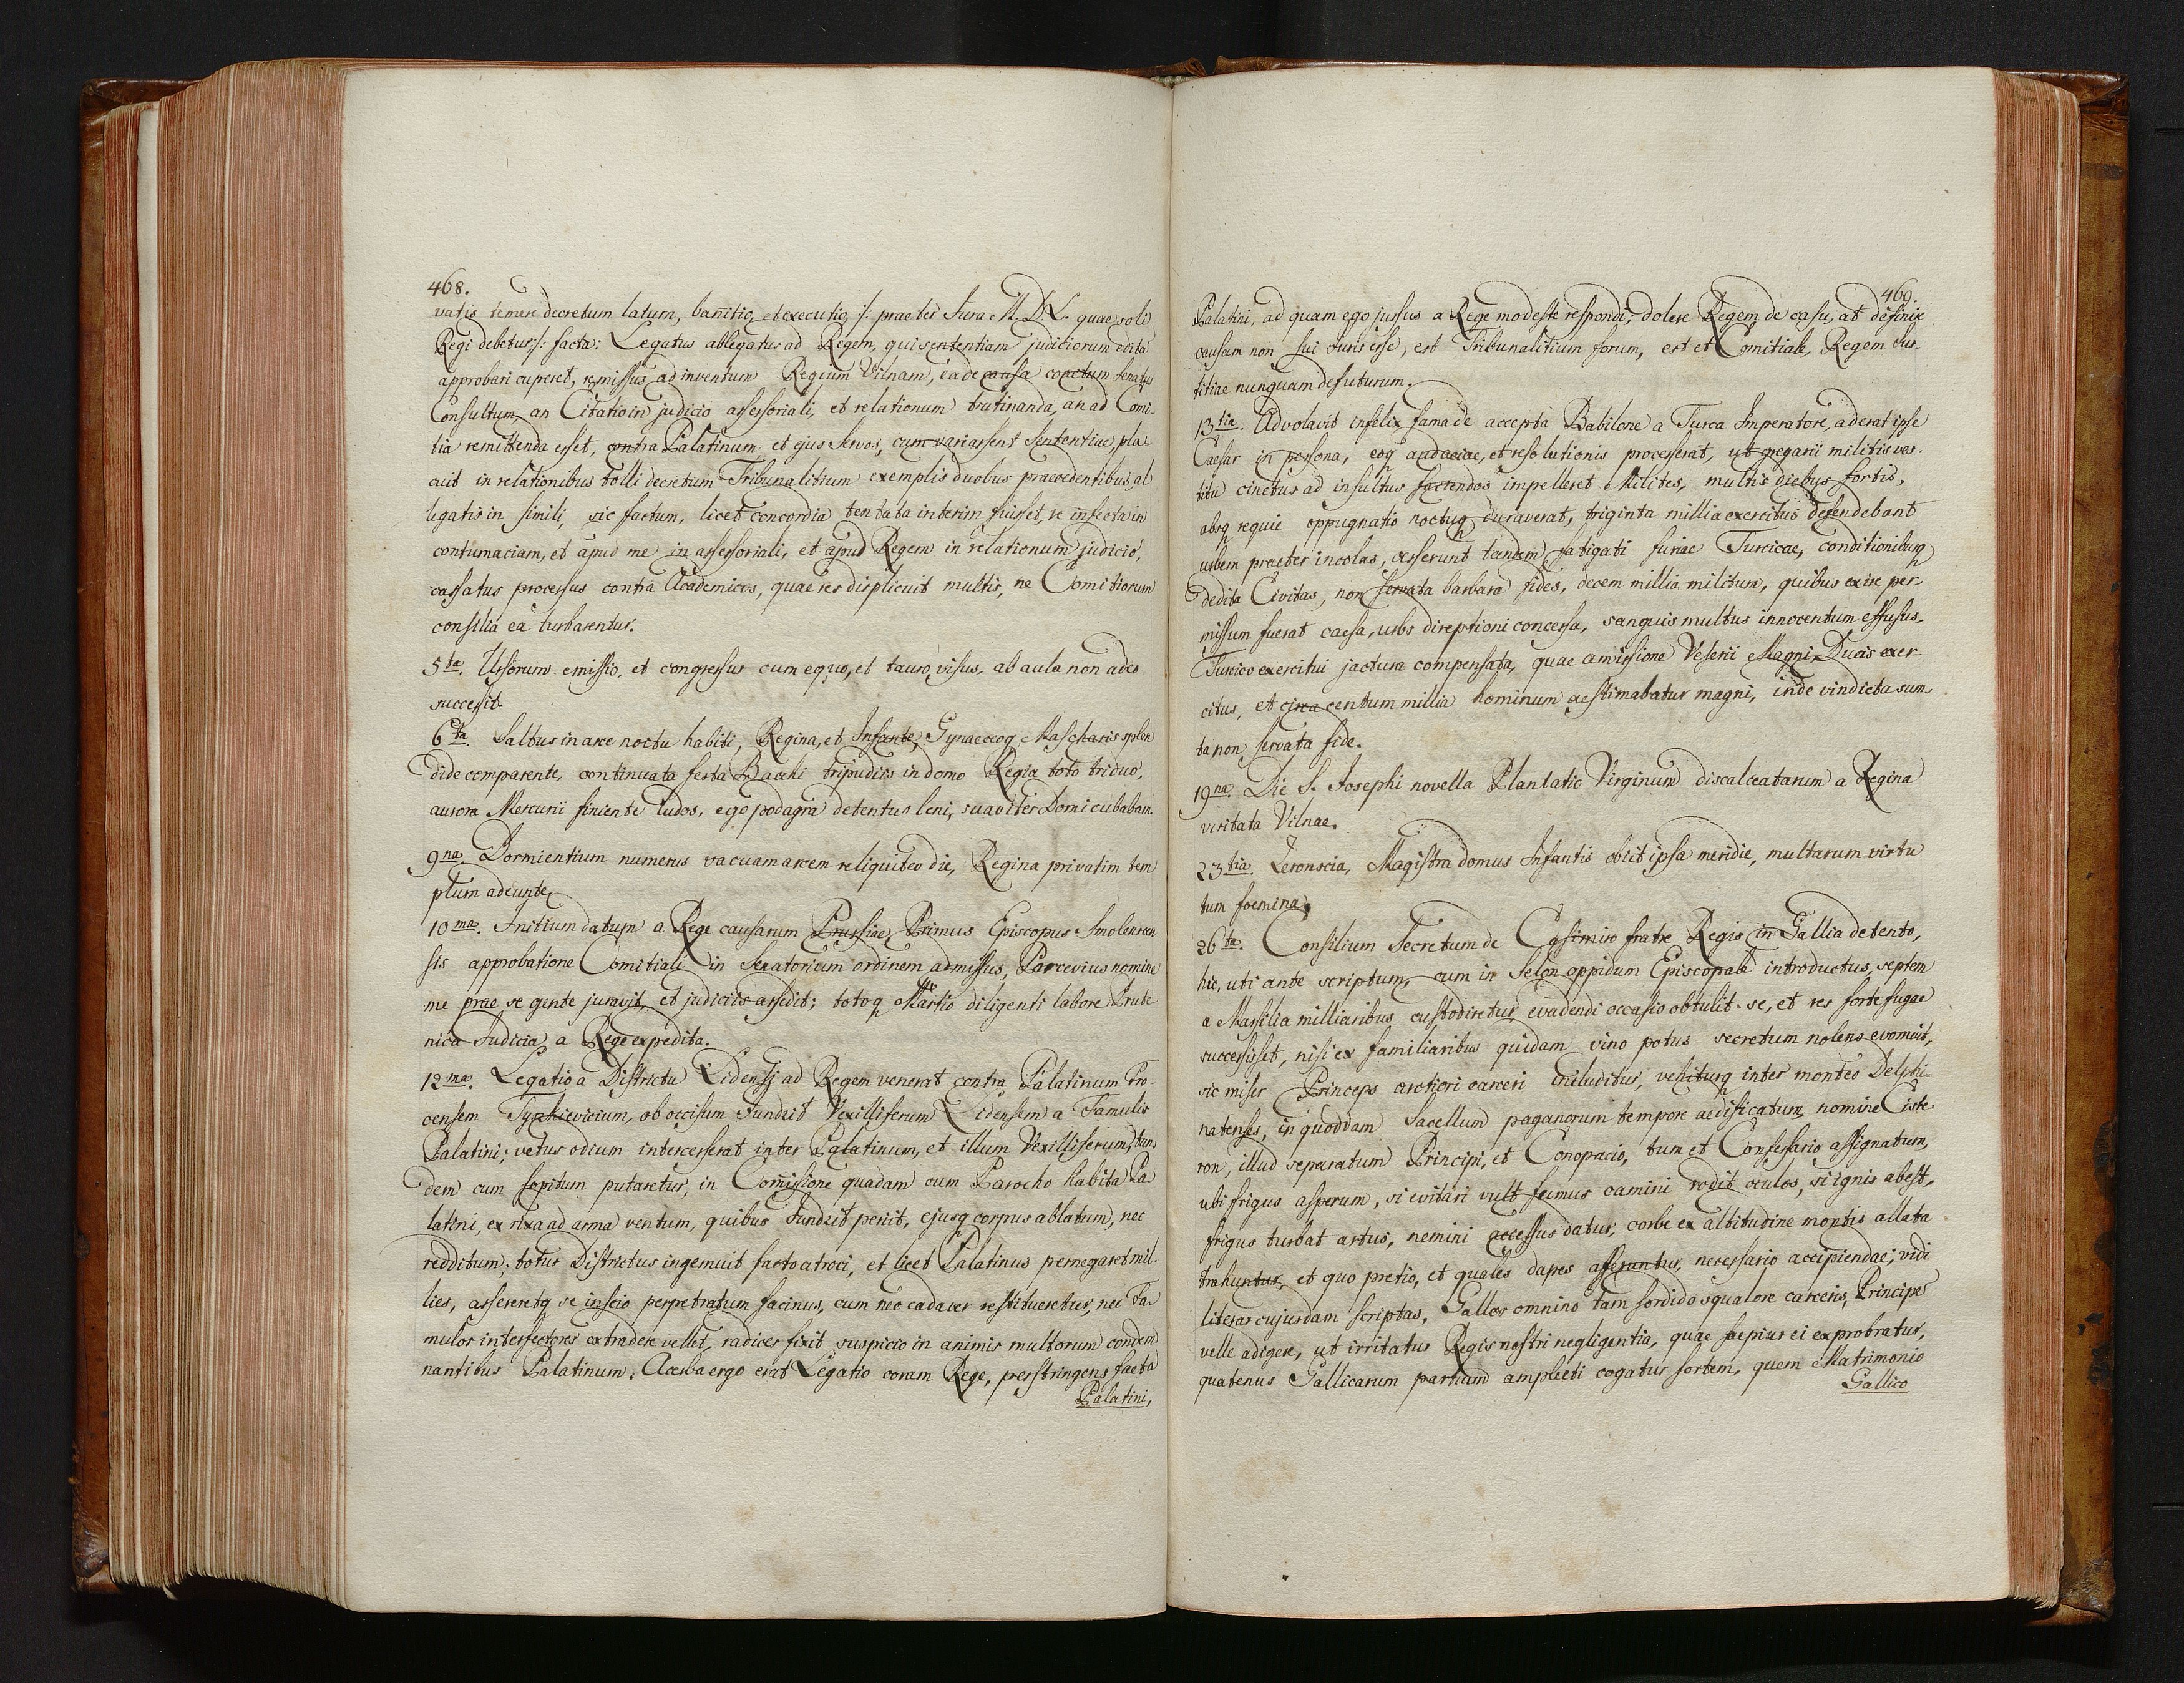 468.
vatis temere decretum latum, bannitio, et executio /: praeter Jura M. D. L. quae soli
Regi debetur :/ facta: Legatus ablegatus ad Regem, qui sententiam judiciorum edita
approbari cuperet, remissus ad inventum Regium Vilnam, ea de causa coactum Senatus
Consultum, an Citatio in judicio assessoriali, et relationum trutinanda, an ad Comi-
tia remittenda esset, contra Palatinum, et ejus Servos, cum variassent Sententiae pla-
cuit in relationibus tolli decretum Tribunalitium exemplis duobus praecedentibus, al
legatis in simili, sic factum, licet concordia tentata interim fuisset, re infecta in
contumaciam, et apud me in assessoriali, et apud Regem in relationum judicio,
cassatus processus contra Academicos, quae res displicuit multis, ne Comitiorum
consilia ea turbarentur.
5ta. Ursorum emissio, et congressus cum equo, et tauro, visus, ab aula non adeo
successit.
6ta. Saltus in arce noctu habiti, Regina, et Infante, Gynaeceoq Mascharis splen
dide comparente, continuata festa Bacchi tripudiis in domo Regia toto triduo,
aurora Mercurii finiente ludos, ego podagra detentus leni, suaviter Domi cubabam.
9na. Dormientium numerus vacuam arcem reliquit eo die, Regina privatim tem
plum adeunte,
10ma. Initium datum a Rege causarum Prussiae, Primus Episcopus Smolenscen
sis approbatione Comitiali in Senatorium ordinem admissus, Parcevius nomine
me prae se gente juravit, et judiciis assedit; totoq Martio diligenti labore Prute
nica Judicia a Rege expedita.
12ma. Legatio a Districtu Lidensj ad Regem venerat contra Palatinum Tro-
censem Tyszkievicium, ob occisum Jundzit Vexilliferum Lidensem a Famulis
Palatini; vetus odium intercesserat inter Palatinum, et illum Vexilliferum, tan
dem cum sopitum putaretur, in Comissione quadam cum Parocho habita Pa
latini, ex rixa ad arma ventum, quibus Jundzit periit, ejusq corpus ablatum, nec
redditum; totus Districtus ingemuit facto atroci, et licet Palatinus pernegaret mil-
lies, assereretq se inscio perpetratum facinus, cum nec cadaver restitueretur, nec Fa-
mulos interfectores extradere vellet, radices fixit suspicio in animis multorum condem
nantibus Palatinum. Acerba ergo erat Legatio coram Rege, perstringens facta
Palatini,
469.
Palatini, ad quam ego jussus a Rege modeste respondi; dolere Regem de casu, at definire
causam non sui Juris esse, est Tribunalitium forum, est et Comitiale, Regem Jus-
titiae nunquam defuturum.
13tia. Advolavit infelix fama de accepta Babilone a Turca Imperatore, aderat ipse
Caesar in persona, eoq audaciae, et resolutionis processerat, ut gregarii militis ves-
titu cinctus ad insultus faciendos impelleret Milites, multis diebus fortis,
absq requie oppugnatio noctuq duraverat, triginta millia exercitus defendebant
urbem praeter incolas, cesserunt tandem fatigati furiae Turcicae, conditionibusq
dedita Civitas, non servata barbara fides, decem millia militum, quibus exire per-
missum fuerat caesa, urbs direptioni concessa, sanguis multus innocentum effusus,
Turcico exercitui jactura compensata, quae amissione Veserii Magni, Ducis exer-
citus, et circa centum millia hominum aestimabatur magni, inde vindicta sum
ta non servata fide.
19na. Die S. Josephi novella Plantatio Virginum discalceatarum a Regina
visitata Vilnae.
23tia. Zeronscia, Magistra domus Infantis obiit ipsa meridie, multarum virtu
tum foemina.
26ta. Consilium Secretum de Casimiro fratre Regis in Gallia detento,
hic, uti ante scriptum, cum in Selon oppidum Episcopale introductus, septem
a Marsilia milliaribus custodiretur, evadendi occasio obtulit se, et res forte fugae
successisset, nisi ex familiaribus quidam vino potus secretum nolens evomuit,
sic miser Princeps arctiori carceri includitur, vehiturq inter montes Delphi-
natenses, in quoddam Sacellum paganorum tempore aedificatum, nomine Ciste
ron, illud separatum Principi, et Conopacio, tum et Confessario assignatum,
ubi frigus asperum, si evitari vult fumus camini rodit oculos, si ignis abest,
frigus turbat artus, nemini accessus datur, corbe ex altitudine montis allata
trahuntur, et quo pretio, et quales dapes afferuntur, necessario accipiendae; vidi
literas cujusdam scriptas, Gallos omnino tam sordido squalore carceris, Principe
velle adigere, ut irritatus Regis nostri negligentia, quae saepius ei exprobratur,
quatenus Gallicarum partium amplecti cogatur sortem, quem Matrimonio
Gallico